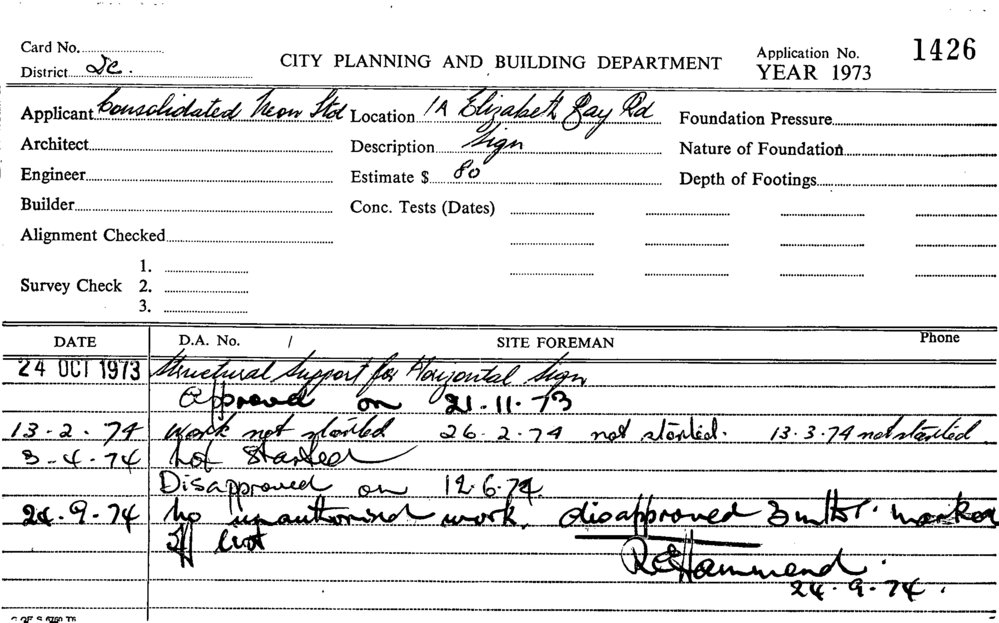 Card No.
CITY PLANNING AND BUILDING DEPARTMENT
Application No. 1426
YEAR 1973
District
Applicant Consolidated Neon Ltd Location 1A Elizabeth Bay Rd Foundation Pressure
Architect Description Sign Nature of Foundation
Engineer Estimate $ 80 Depth of Footings
Builder Conc. Tests (Dates)
Alignment Checked
1.
Survey Check 2.
3.
DATE D.A. No. / SITE FOREMAN Phone
24 OCT 1973 Structural Support for Horizontal Sign
Approved on 21.11.73
13-2-74 Work not started 26-2-74 not started. 13.3.74 not started
3-4-74 Not Started
Disapproved on 12.6.74
24.9.74 No unauthorised work, disapproved marked
off
Hammond
24.9.74.